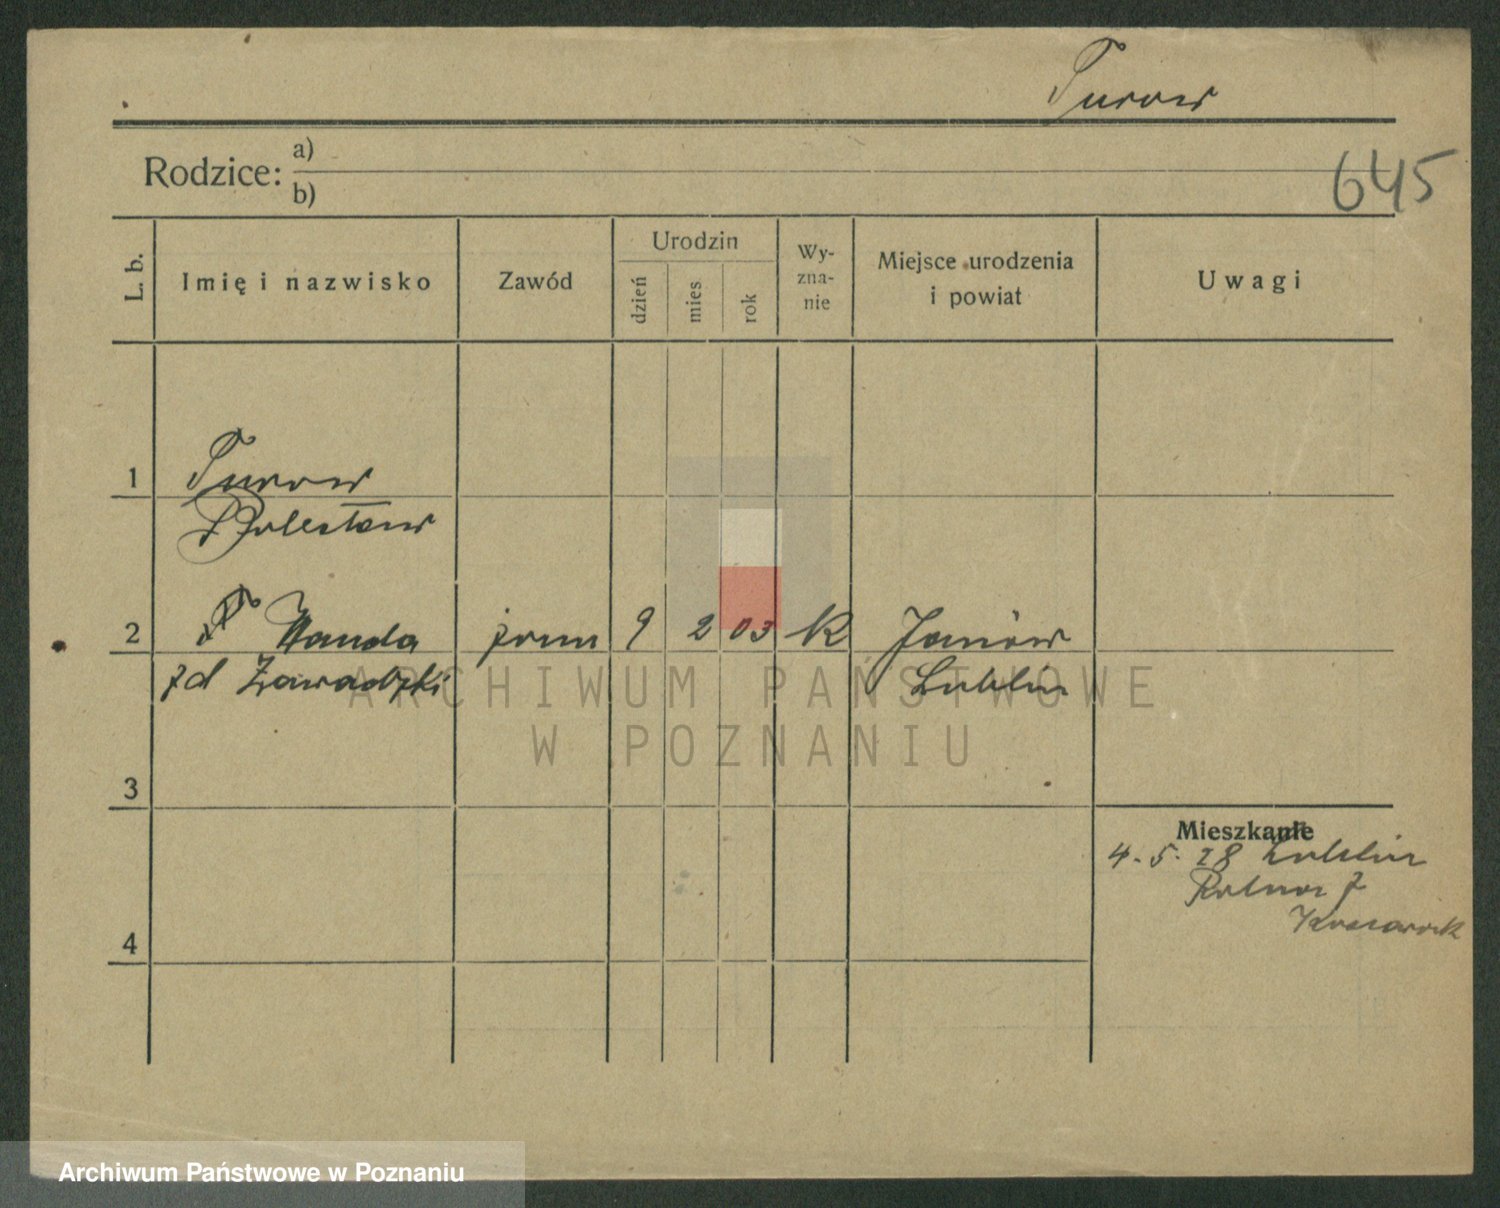 Turow
Rodzice: a)
b)
645
L. b.
Imię i nazwisko
Zawód
Urodzin
dzień
mies
rok
Wy-
zna-
nie
Miejsce urodzenia
i powiat
Uwagi
1
Turow
Bolesław
2
T Wanda
zd Zawadzki
9 2 03 K
Janów
Lublin
3
Mieszkanie
4. 5. 28 Lublin
4
ARCHIWUM PAŃSTWOWE
W POZNANIU
Archiwum Państwowe w Poznaniu